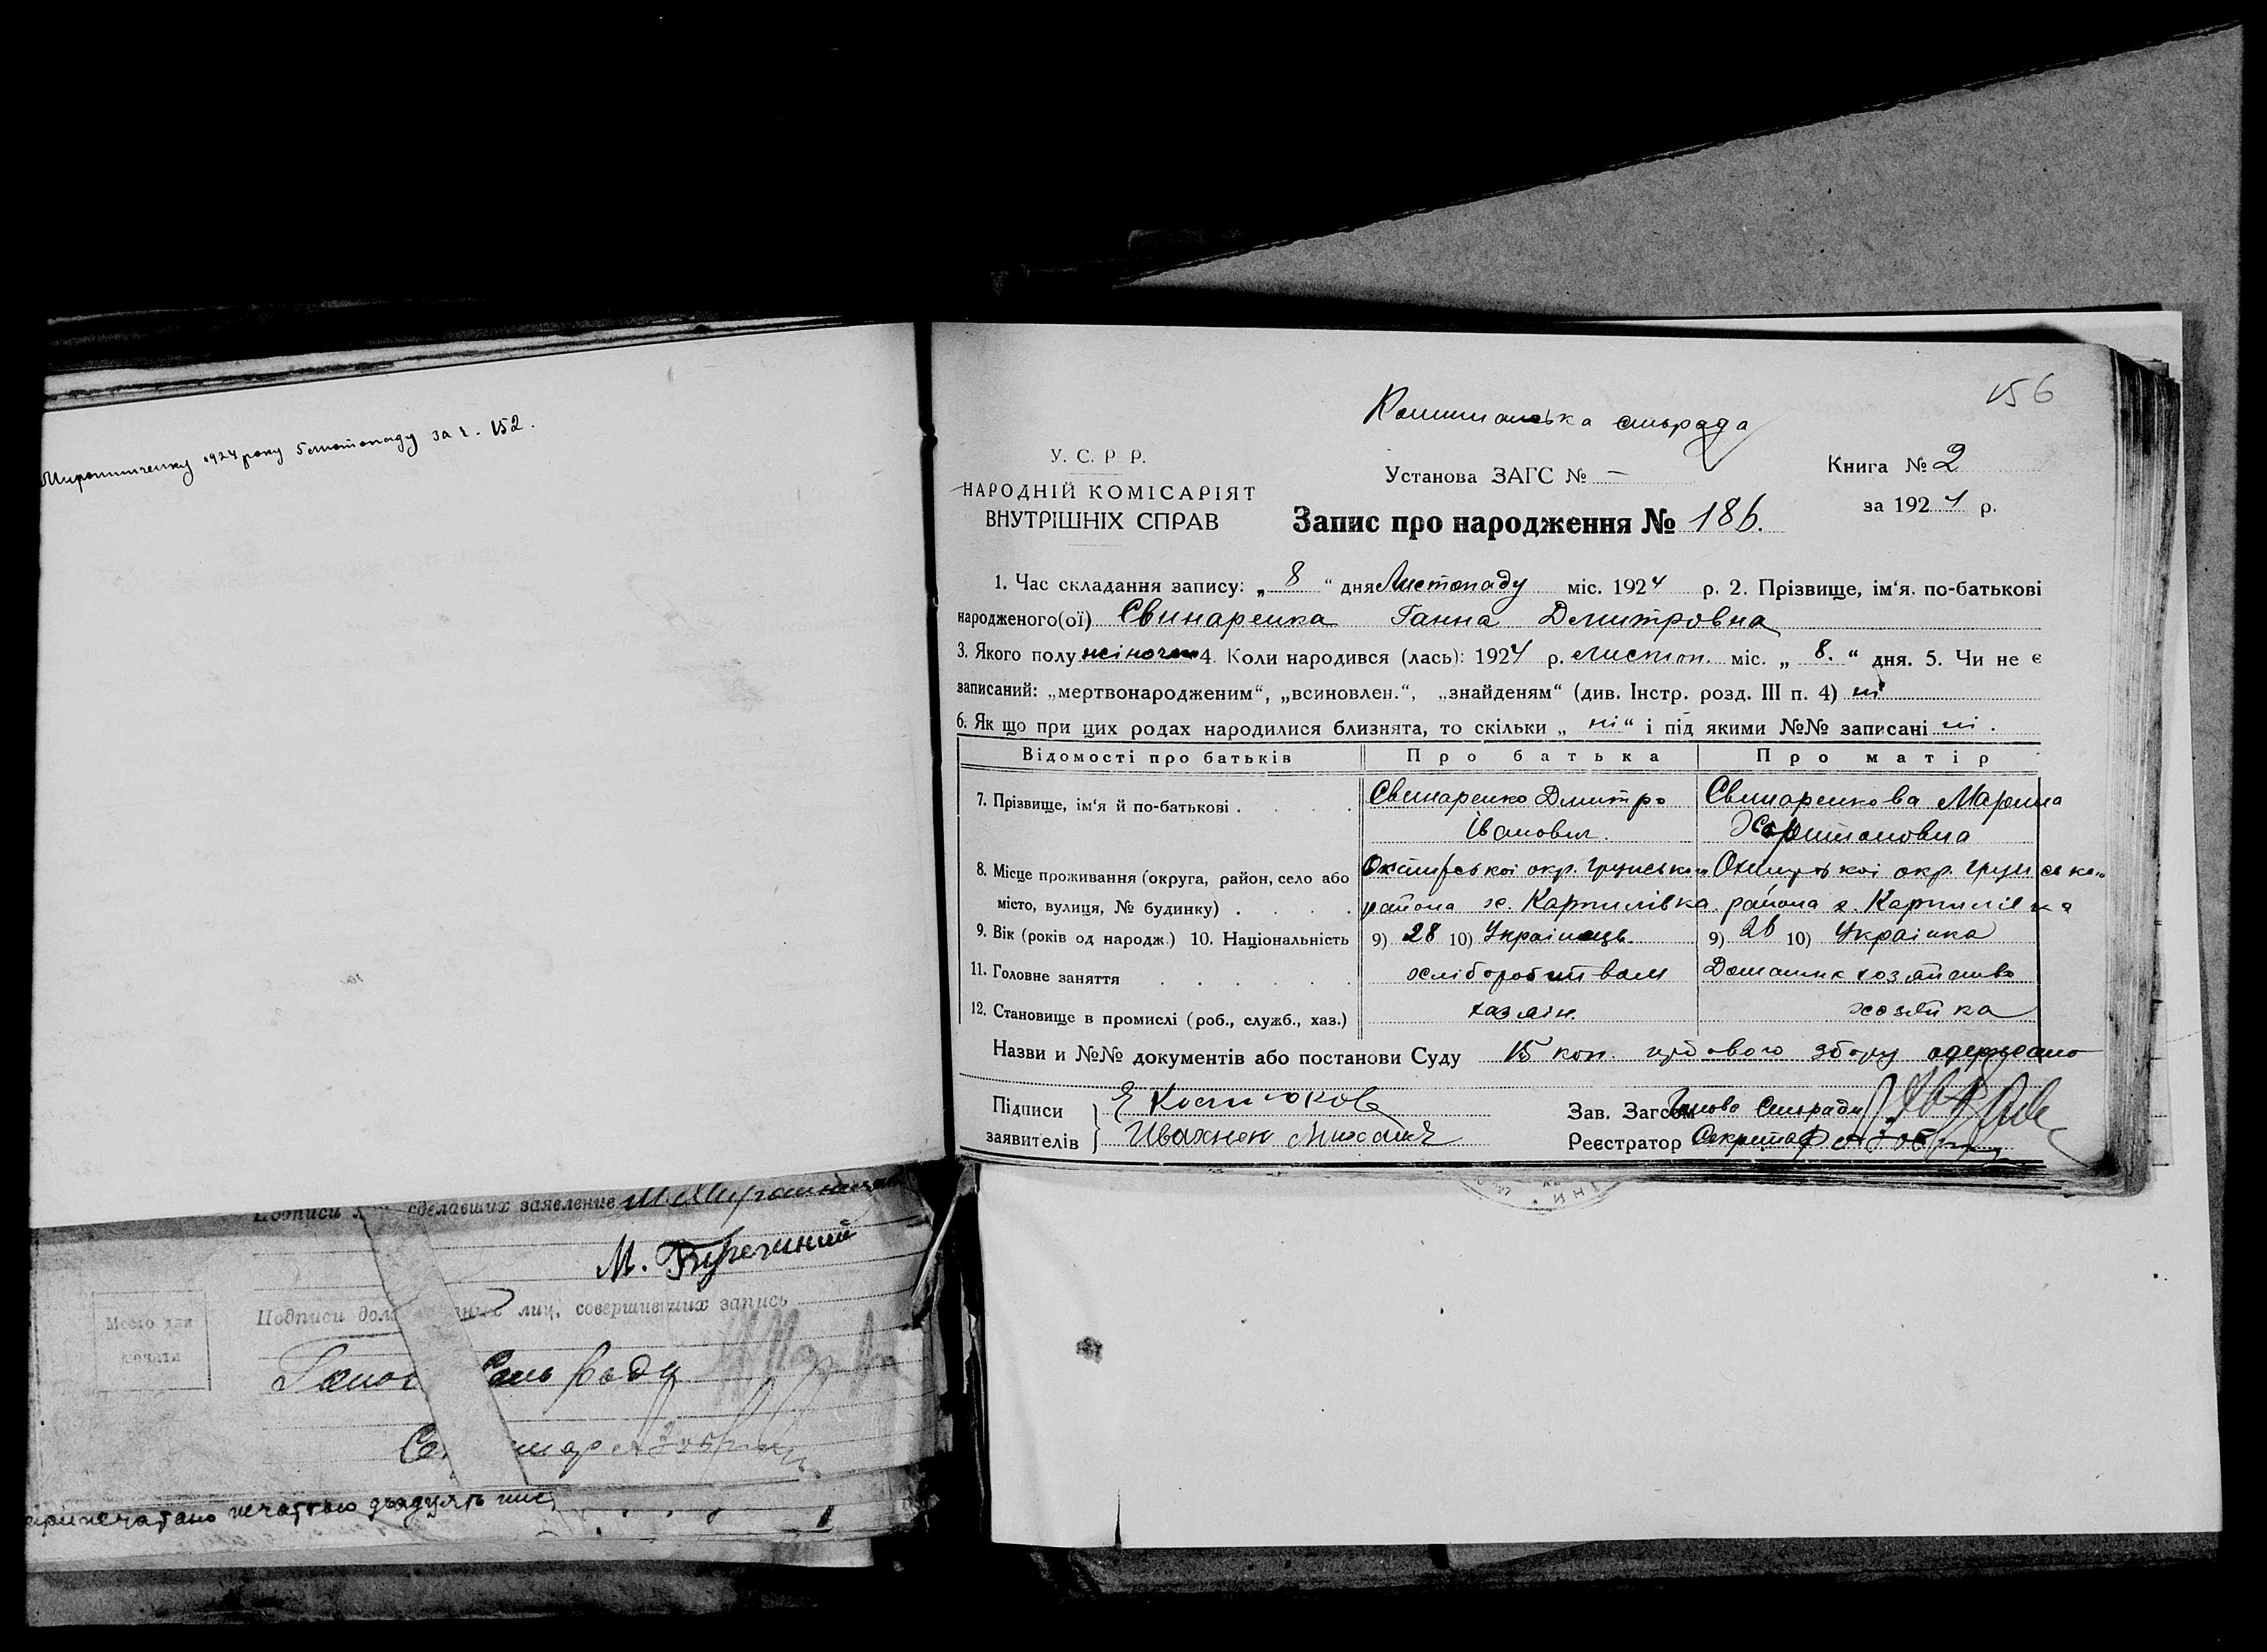 1924 року 5 листопаду за ч. 152.
сделавших заявление
М.
Место для
печати
Подписи лиц, совершивших запись
печаткою двадцять
156
сільрада
У. С. Р Р.
НАРОДНІЙ КОМІСАРІЯТ
ВНУТРІШНІХ СПРАВ
Установа ЗАГС № —
Книга № 2
за 1924 р.
Запис про народження № 186.
1. Час складання запису: „ 8 “ дня Листопаду міс. 1924 р. 2. Прізвище, ім‘я, по-батькові
народженого(ої) Свинаренка Ганна Дмитровна
3. Якого полу жіночого 4. Коли народився (лась): 1924 р. листоп. міс. „ 8. “ дня. 5. Чи не є
записаний: „мертвонародженим“, „всиновлен.“, „знайденям“ (див. Інстр. розд. III п. 4) ні
6. Як що при цих родах народилися близнята, то скільки „ ні “ і під якими №№ записані ні .
Відомості про батьків Про батька Про матір
7. Прізвище, ім‘я й по-батькові . Свинаренко Дмитро Свинаренкова Марина
Іванович. Харитоновна
8. Місце проживання (округа, район, село або Охтирської окр. Грунської Охтирської окр. Грунської
місто, вулиця, № будинку) . района х. Карпилівка района х. Карпилівка
9. Вік (років од народж.) 10. Національність 9) 28 10) Українець. 9) 26 10) Українка
11. Головне заняття хліборобитвом Домашнє хозяйство
12. Становище в промислі (роб., служб., хаз.) хазяїн. хозяйка
Назви и №№ документів або постанови Суду 15 коп. збору одержано
Підписи Костюкова Зав. Загсом Голова Сільради
заявителів Ивахнен Михаил Реєстратор Секретар